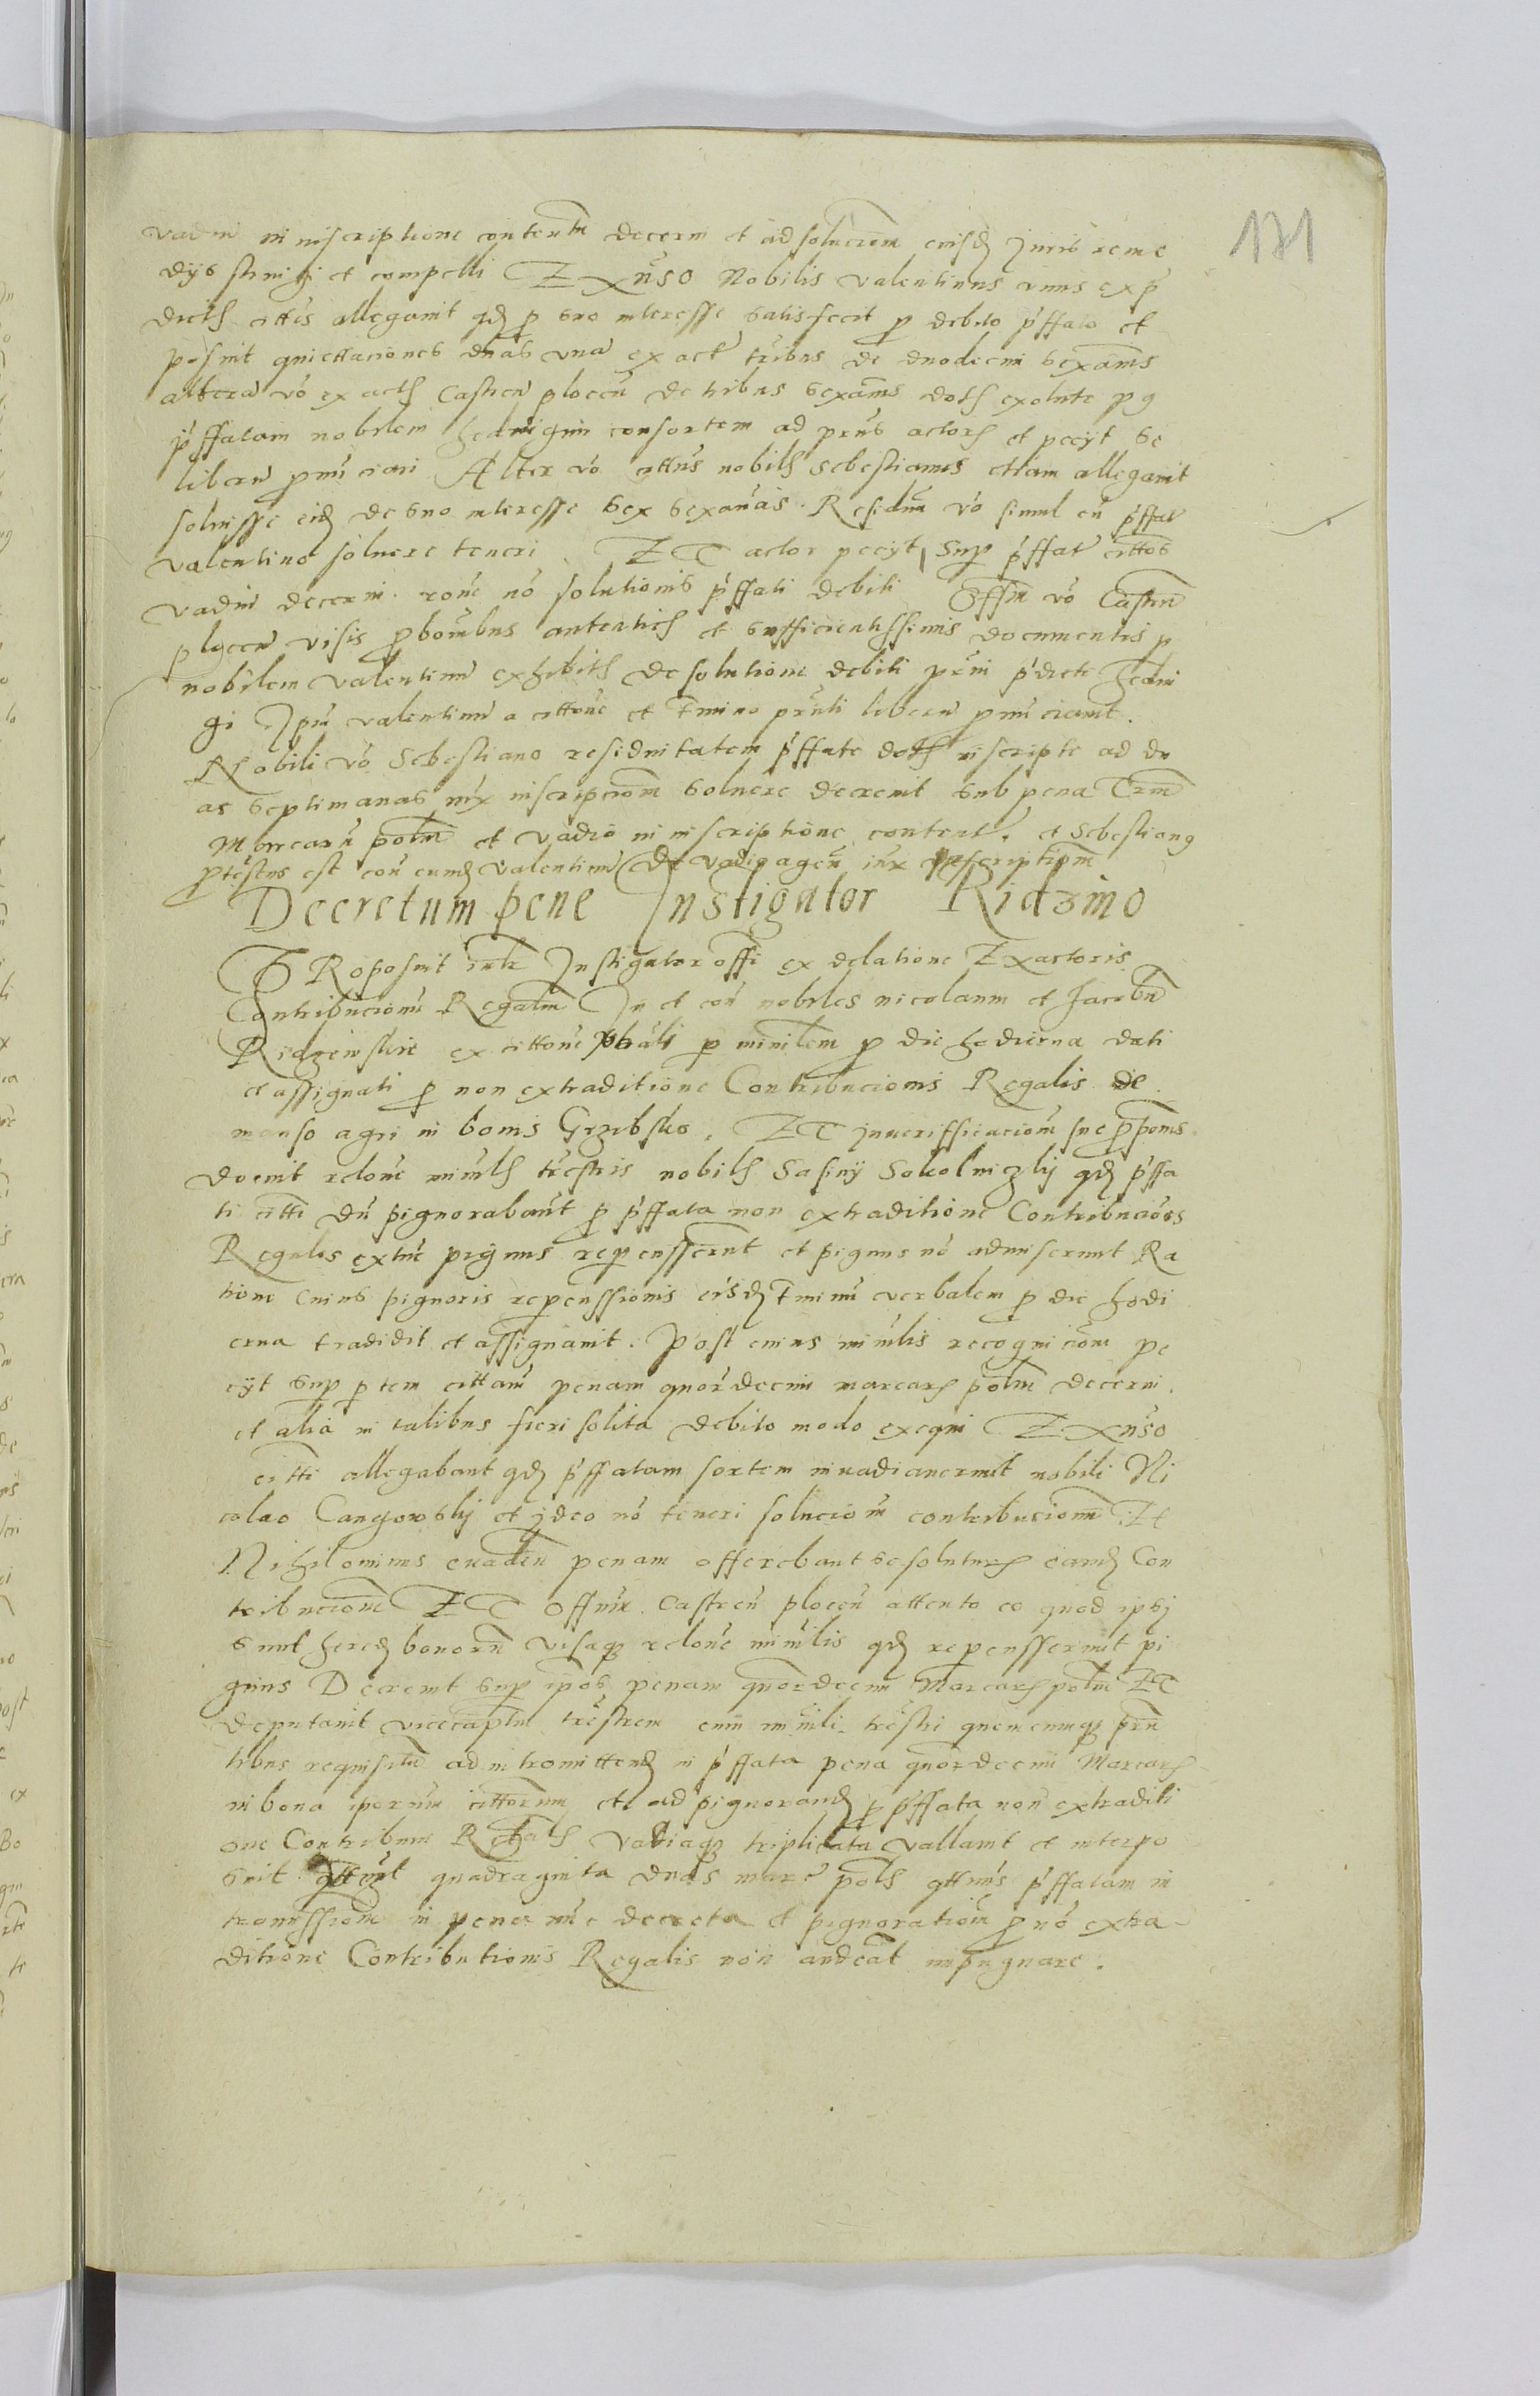 171
vadiu in inscriptione contentu decerni et ad soluciom eiusd Juris reme
dijs stringi et compelli Ex aduso Nobilis valentinus unus ex p
dictis cittis allegauit qd p suo interesse satisfecit p debito pffato et
posuit quiettaciones duas una ex act tribus de duodecim sexams
altera vo ex actis Castren plocen de tribus sexams dotis exolute p
pffatam nobilem hedwigim consortem ad pns actoris et pecijt se
liberu pnuciari Alter vo cittus nobilis Sebestianus etiam allegauit
soluisse eid de suo interesse sex sexanas. Residuu vo simul cu pffat
valentino soluere teneri. ET actor pecijt sup pffat cittos
vadiu decerni rone no solutionis pffati debiti Offm vo Castrn
plocen visis pbombus autenticis et sufficientissimis documentis p
nobilem valentinu exhibitis de solutione debiti pmi pdicte hedwi
gi Jpm valentinu a cittone et Tmino pnti liberu pnuciauit.
Nobili vo Sebestiano residuitatem pffate dotis inscripte ad du
as septimanas iux inscripciom soluere decreuit sub pena Trm
Marcaru polm et vadio in inscriptione content. et Sebestianus
ptestus est con eund valentinu De vadio agen iux inscriptiom
Decretum pene Instigator Ridzino
PRoposuit Instigator offi ex delatione Exactoris
Contribucionu Regaliu In et con nobiles nicolaum et Jacobu
Ridzewskie ex cittone vbali p minilem p die hodierna dati
et assignati p non extraditione Contribucionis Regalis de
manso agri in bonis Grzibsko. ET inueriffacciom sue pposiis
docuit relone minilis trestris nobilis Sasinij Sokolniczkij qd pffa
ti citti du pignorabant p pffata non extraditione Contribucios
Regalis extuc pignus repenssernt et pignus no admiserunt Ra
tione cuius pignoris repenssionis eisd Tminu verbalem p die hodi
erna tradidit et assignauit. Post cuius minilis recogniciom pe
cijt sup ptem cittam penam quordecim marcaris polm decerni
et alia in talibus fieri solita debito modo exequi Ex aduso
citti allegabant qd pffatam sortem inuadiauerunt nobili Ni
colao Cangowskij et ideo no teneri soluciom contribucionu Et
Nihilominus euaden penam offerebant se soluturos eand Con
tribuciom ET Offium Castren plocen attento eo quod ipsi
sunt hered bonoru visaq relone minilis qd repensserunt pi
gnus Decreuit sup ipos penam quordecim Marcaris polm ET
deputauit vicecaptm trestrem cum minili trestri quemcumq prm
tibus requisitu ad intromittend in pffata pena quordecim Marcaris
in bona iporum cittorum et ad pignorand p pffata non extraditi
one Contribum Regalis Vadiaq triplicata vallauit et interpo
suit quadraginta duas marc polis cittus pffatam in
tromissiom in pena nuc decreta et pignoratiom p no extra-
ditione Contributionis Regalis non audeat inpugnare.